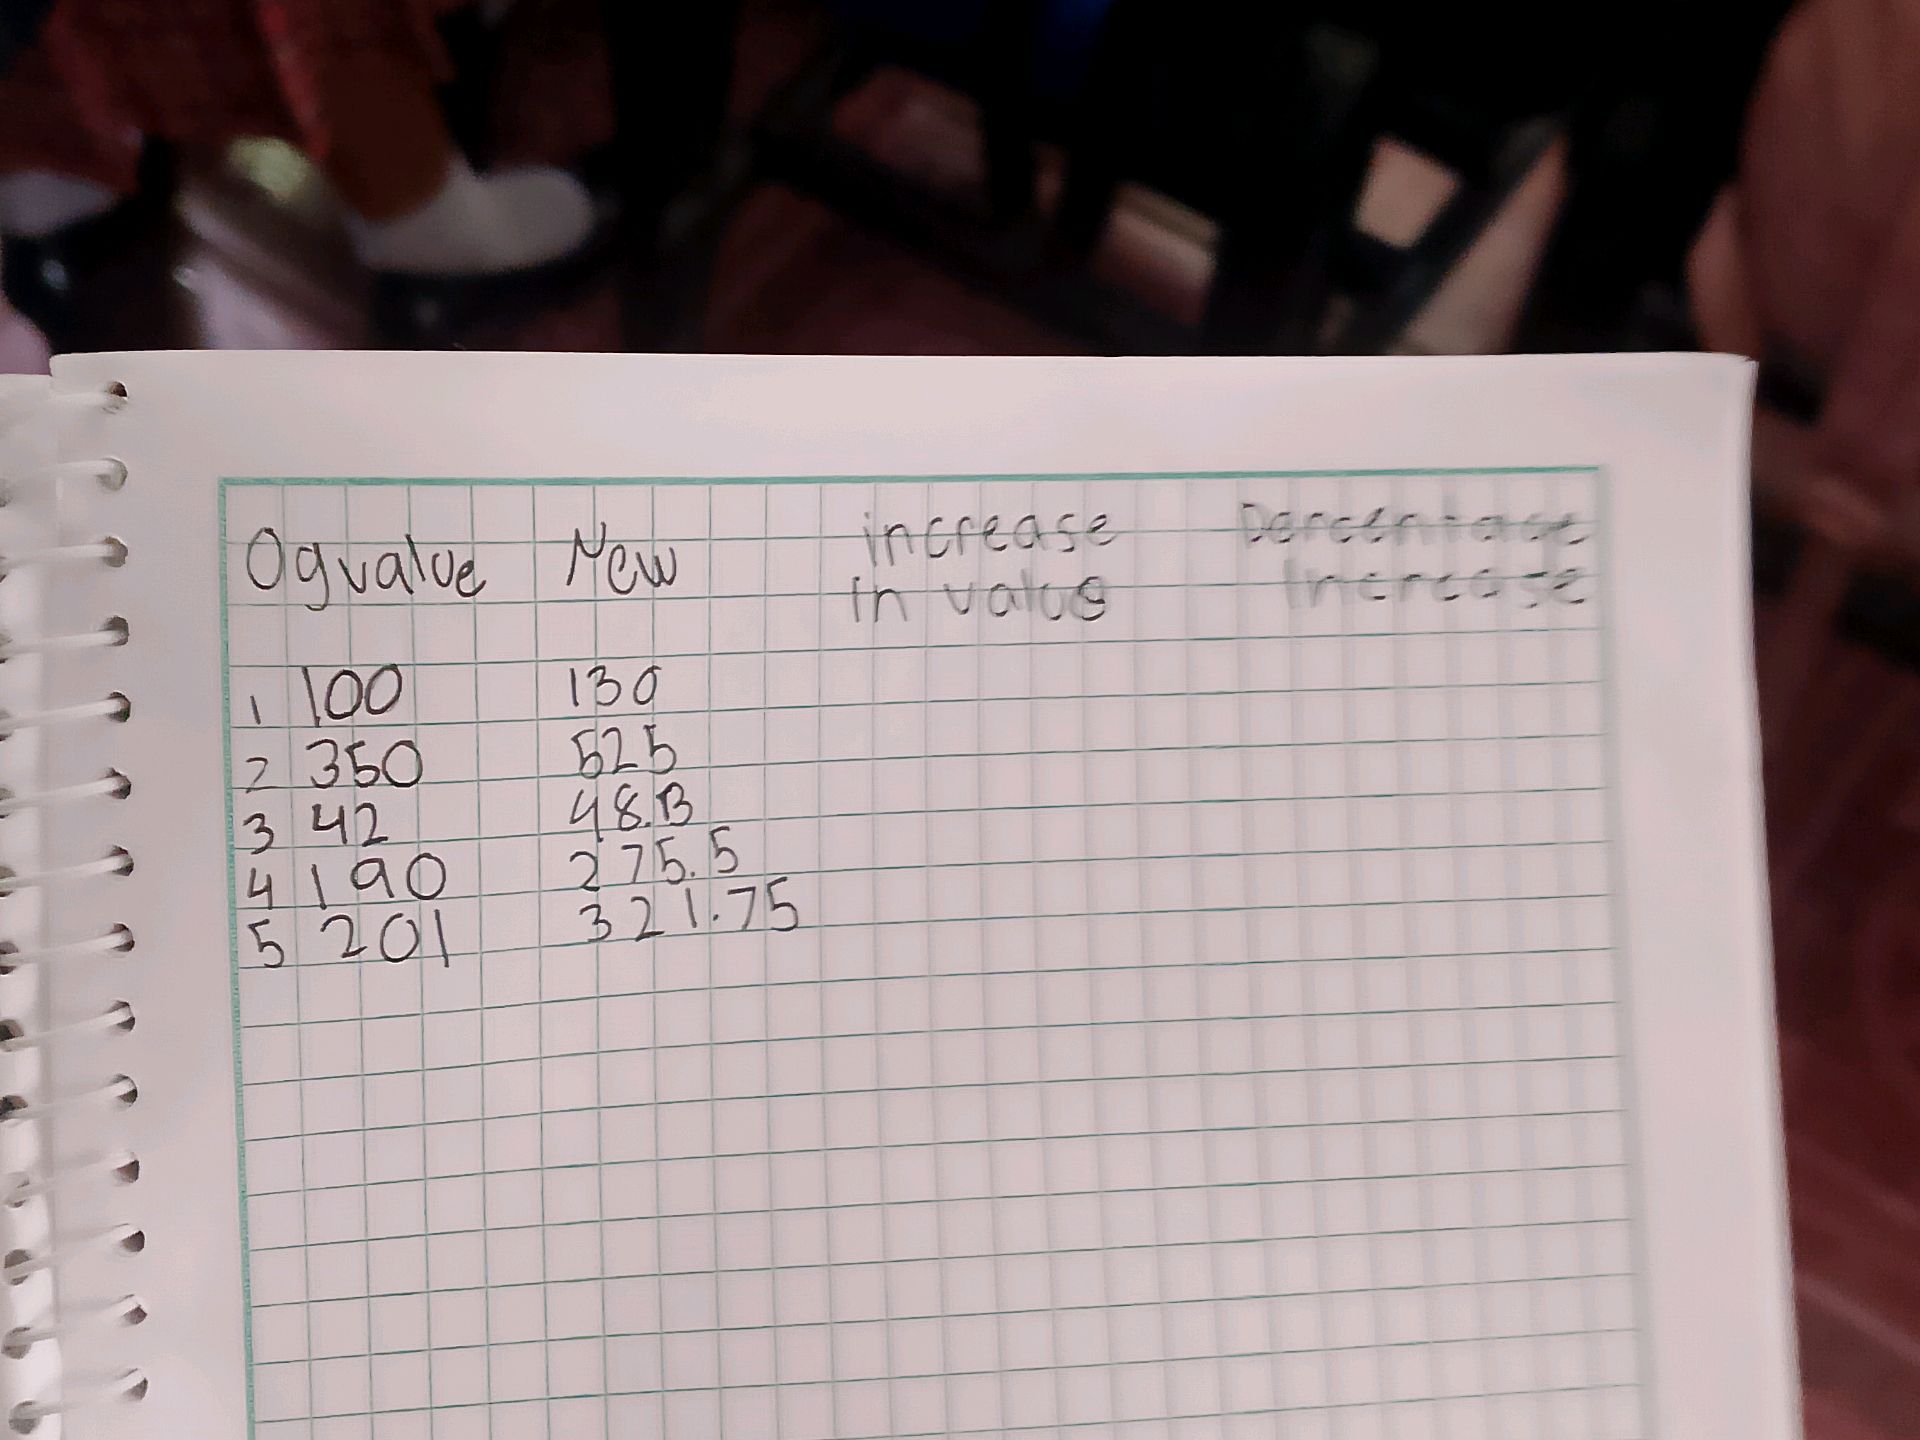 Ogvalue New increase Percentage
in value increase
1 100 130
2 350 525
3 42 48.B
4 190 275.5
5 201 321.75